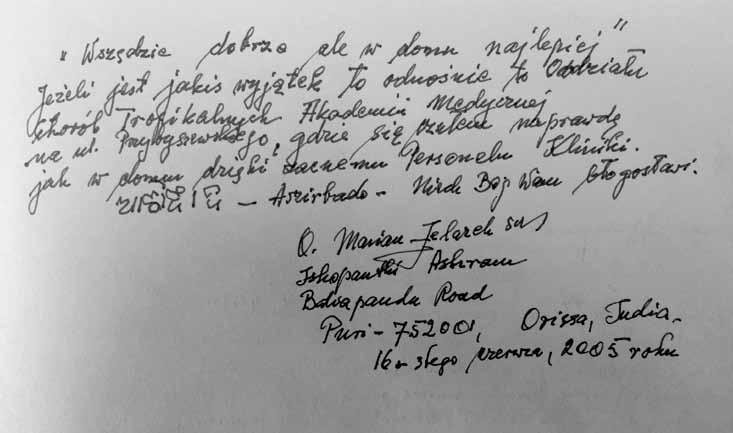 "Wszędzie dobrze ale w domu najlepiej"
Jeżeli jest jakiś wyjątek to odnośnie to Oddziału
chorób Tropikalnych Akademii Medycznej
na ul. Przybyszewskiego, gdzie się czułem naprawdę
jak w domu dzięki zacnemu Personelu Kliniki.
– Aszirbado – Niech Bóg Wam błogosławi.
O. Marian Żelazek SVD
Ishopanthi Ashram
Baliapanda Road
Puri – 752001, Orissa, India –
16-stego czerwca, 2005 roku